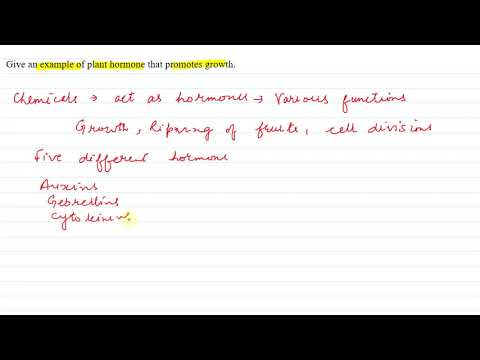 Give an example of plant hormone that promotes growth.
Chemicals → act as hormones → Various functions
Growth, Ripning of fruits, cell divisions
Five different hormone
Auxins
Gebrellins
Cytokinins